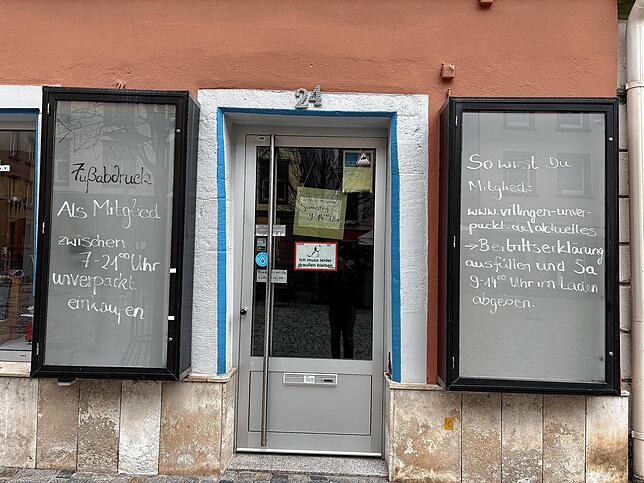 24
Fußabdruck
Als Mitglied
zwischen
7-21⁰⁰ Uhr
unverpackt
einkaufen
Samstag
9-14⁰⁰ Uhr
Ich muss leider
draußen bleiben
So wirst Du
Mitglied:
www.villingen-unver-
packt.de/aktuelles
→ Beitrittserklärung
ausfüllen und Sa
9-14⁰⁰ Uhr im Laden
abgeben.